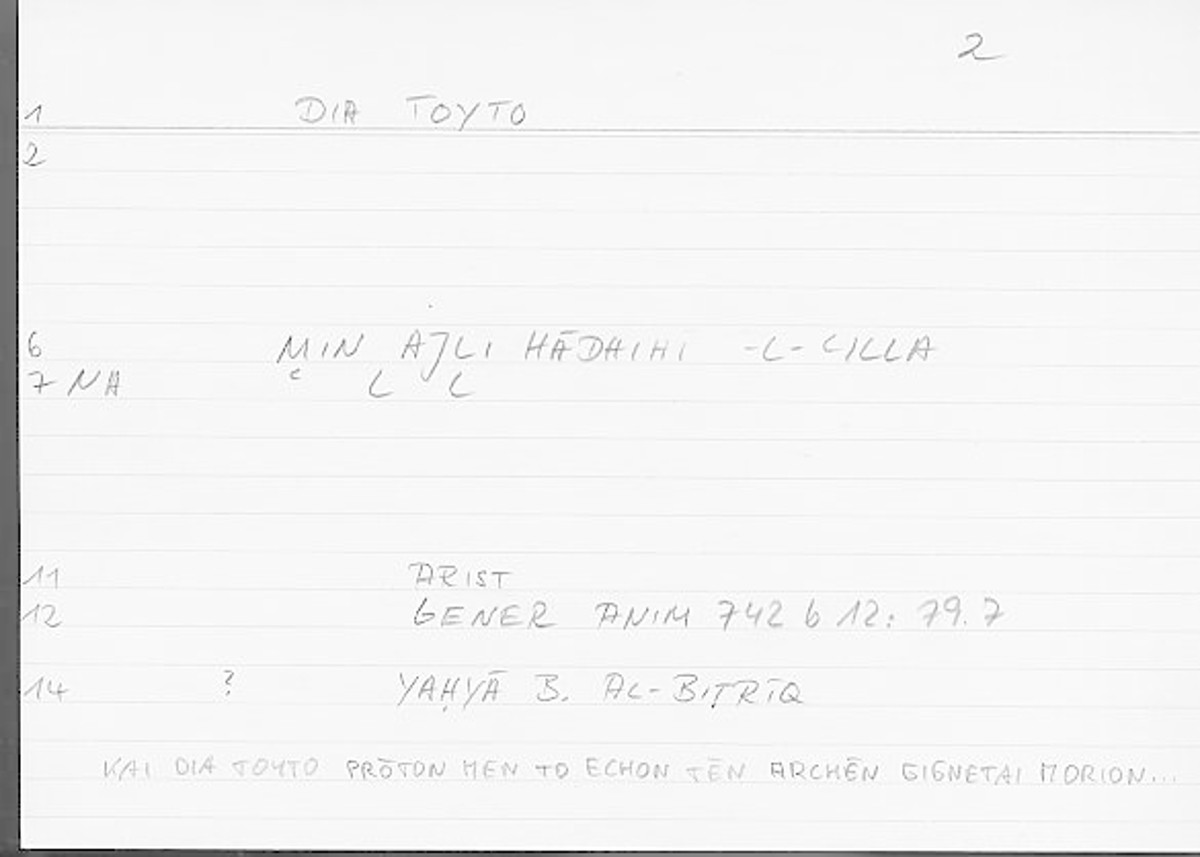 2
1 DIA TOYTO
2
6 MIN AJLI HĀDAIHI -L- ʿILLA
7 NA c L L
11 ARIST
12 GENER ANIM 742 b 12: 79.7
14 ? YAḤYĀ B. AL-BIṬRĪQ
KAI DIA TOYTO PRŌTON MEN TO ECHON TĒN ARCHĒN GIGNETAI MORION...